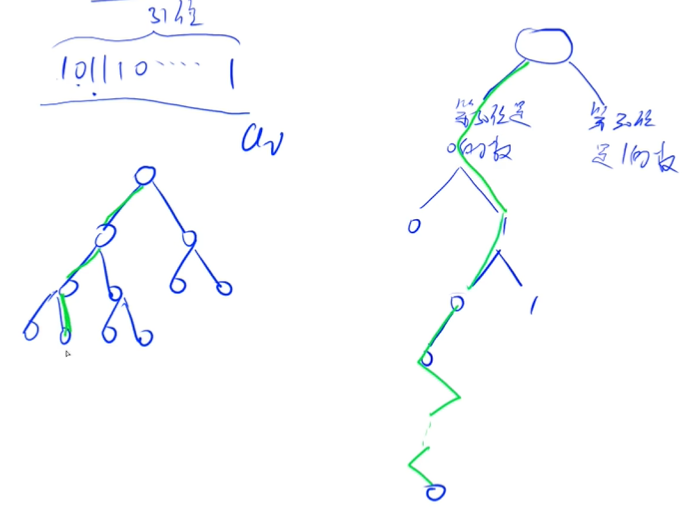 31位
101110.....1
aᵢ
第30位是
0的数
第30位
是1的数
0
1
0
1